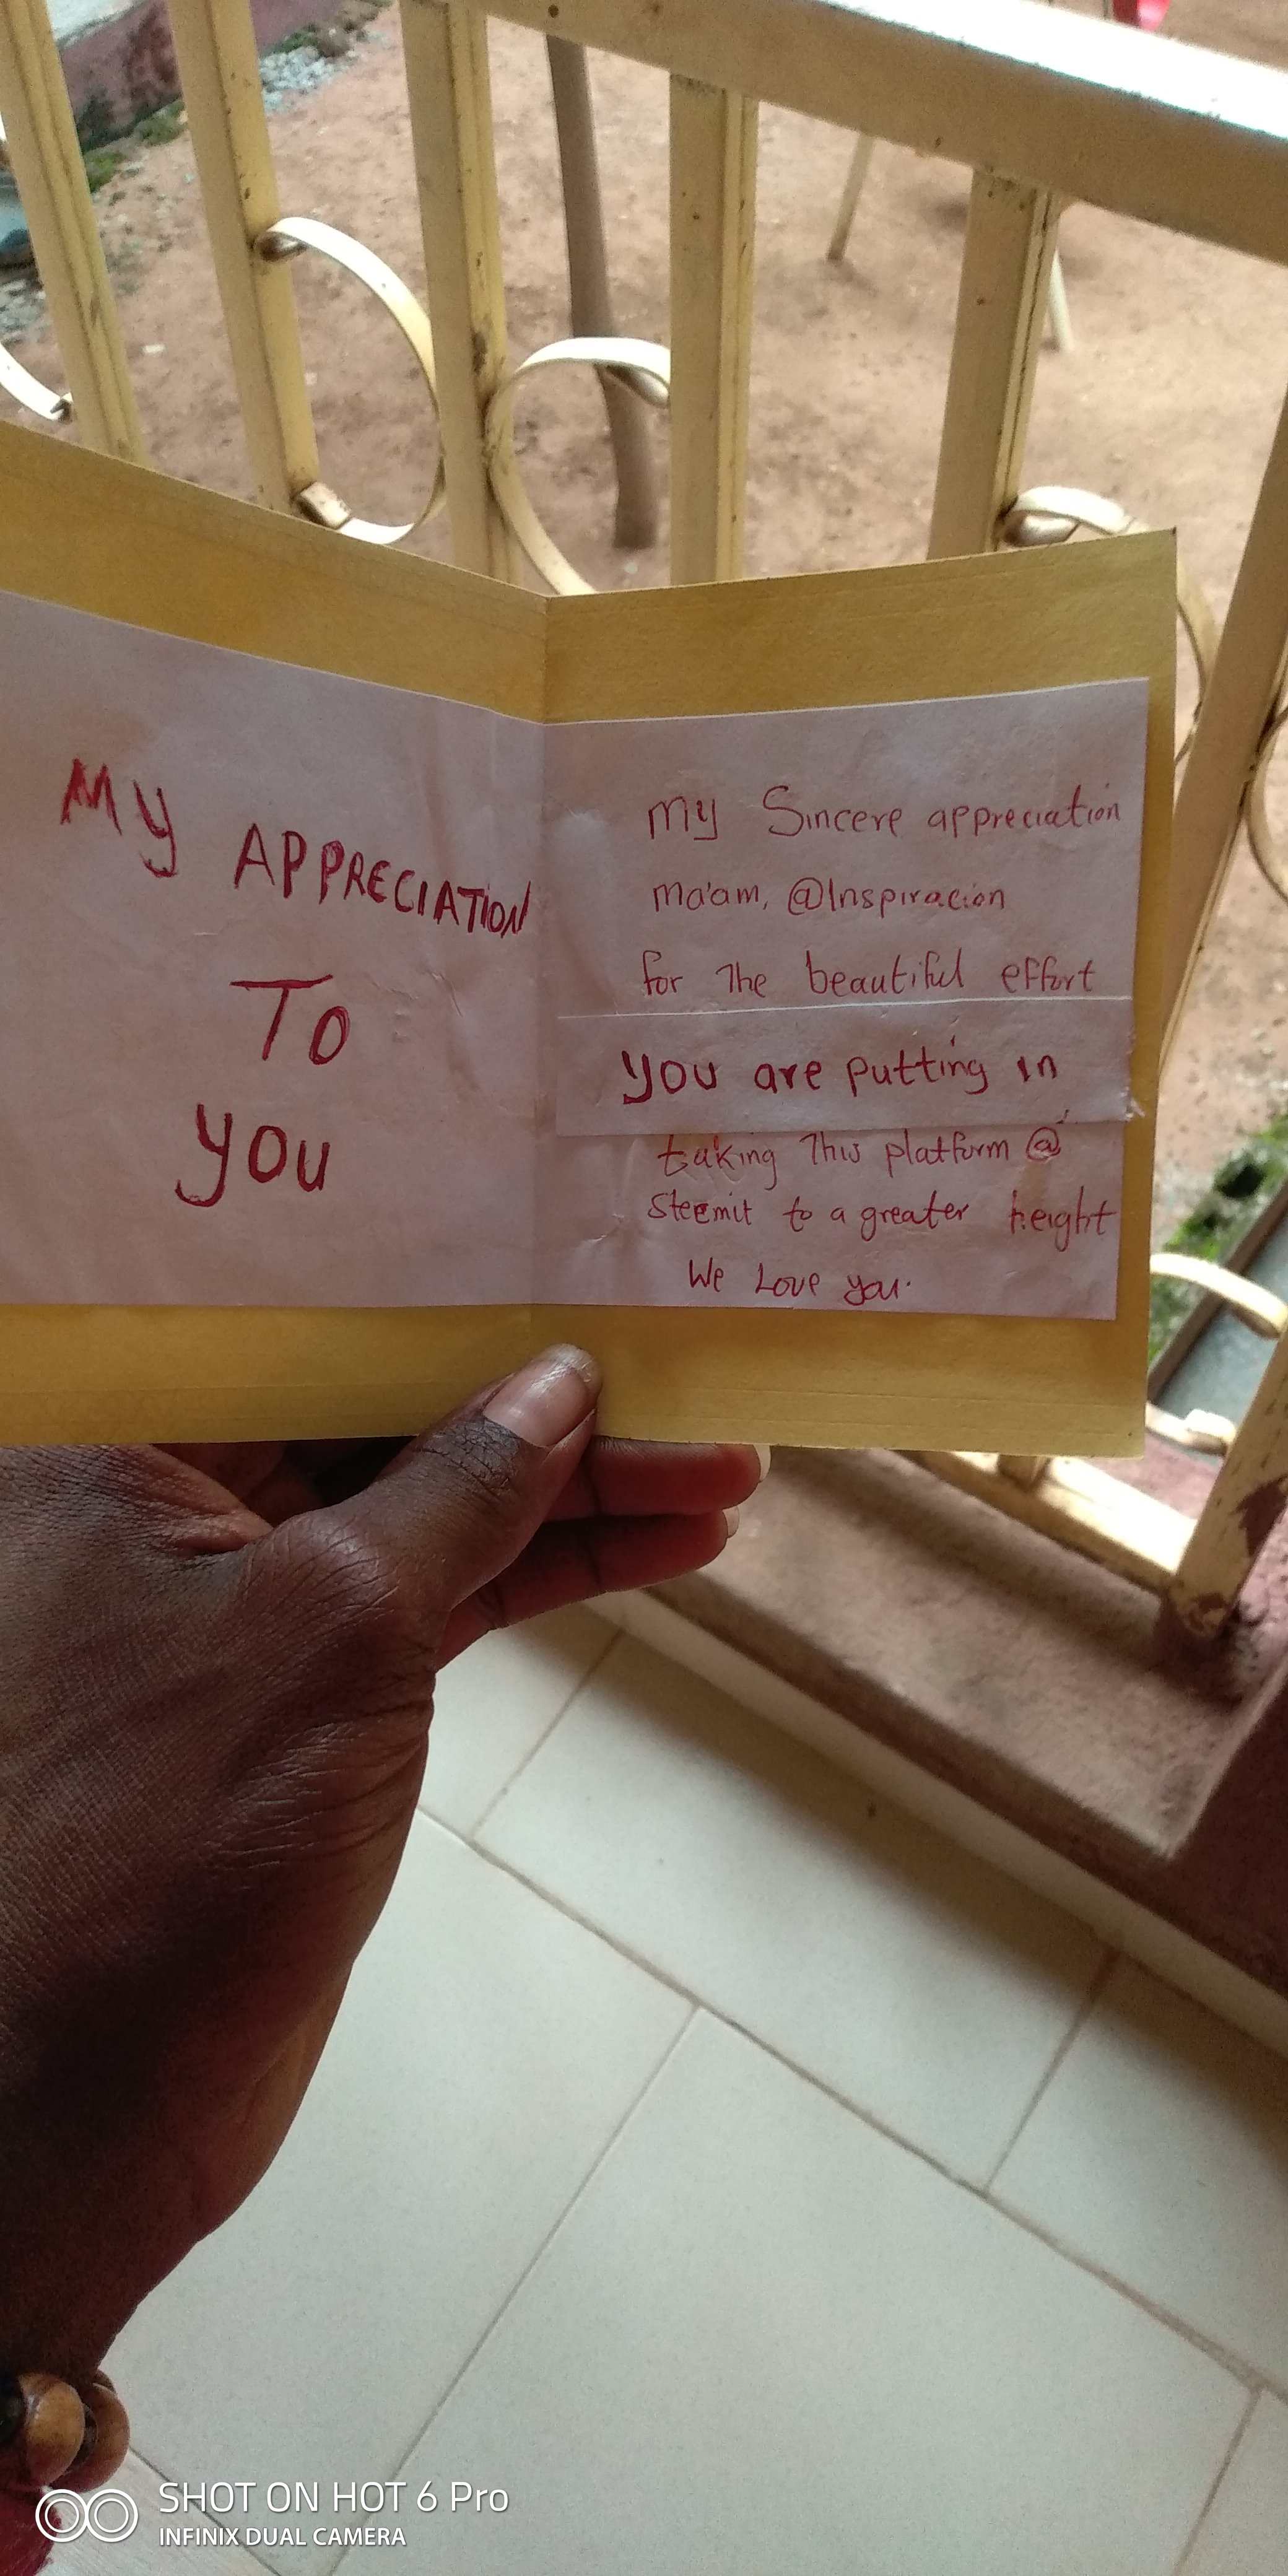 MY APPRECIATION
To
you
My Sincere appreciation
ma'am, @Inspiracion
for The beautiful effort
you are putting in
taking This platform @
Steemit to a greater height
We Love you.
SHOT ON HOT 6 Pro
INFINIX DUAL CAMERA